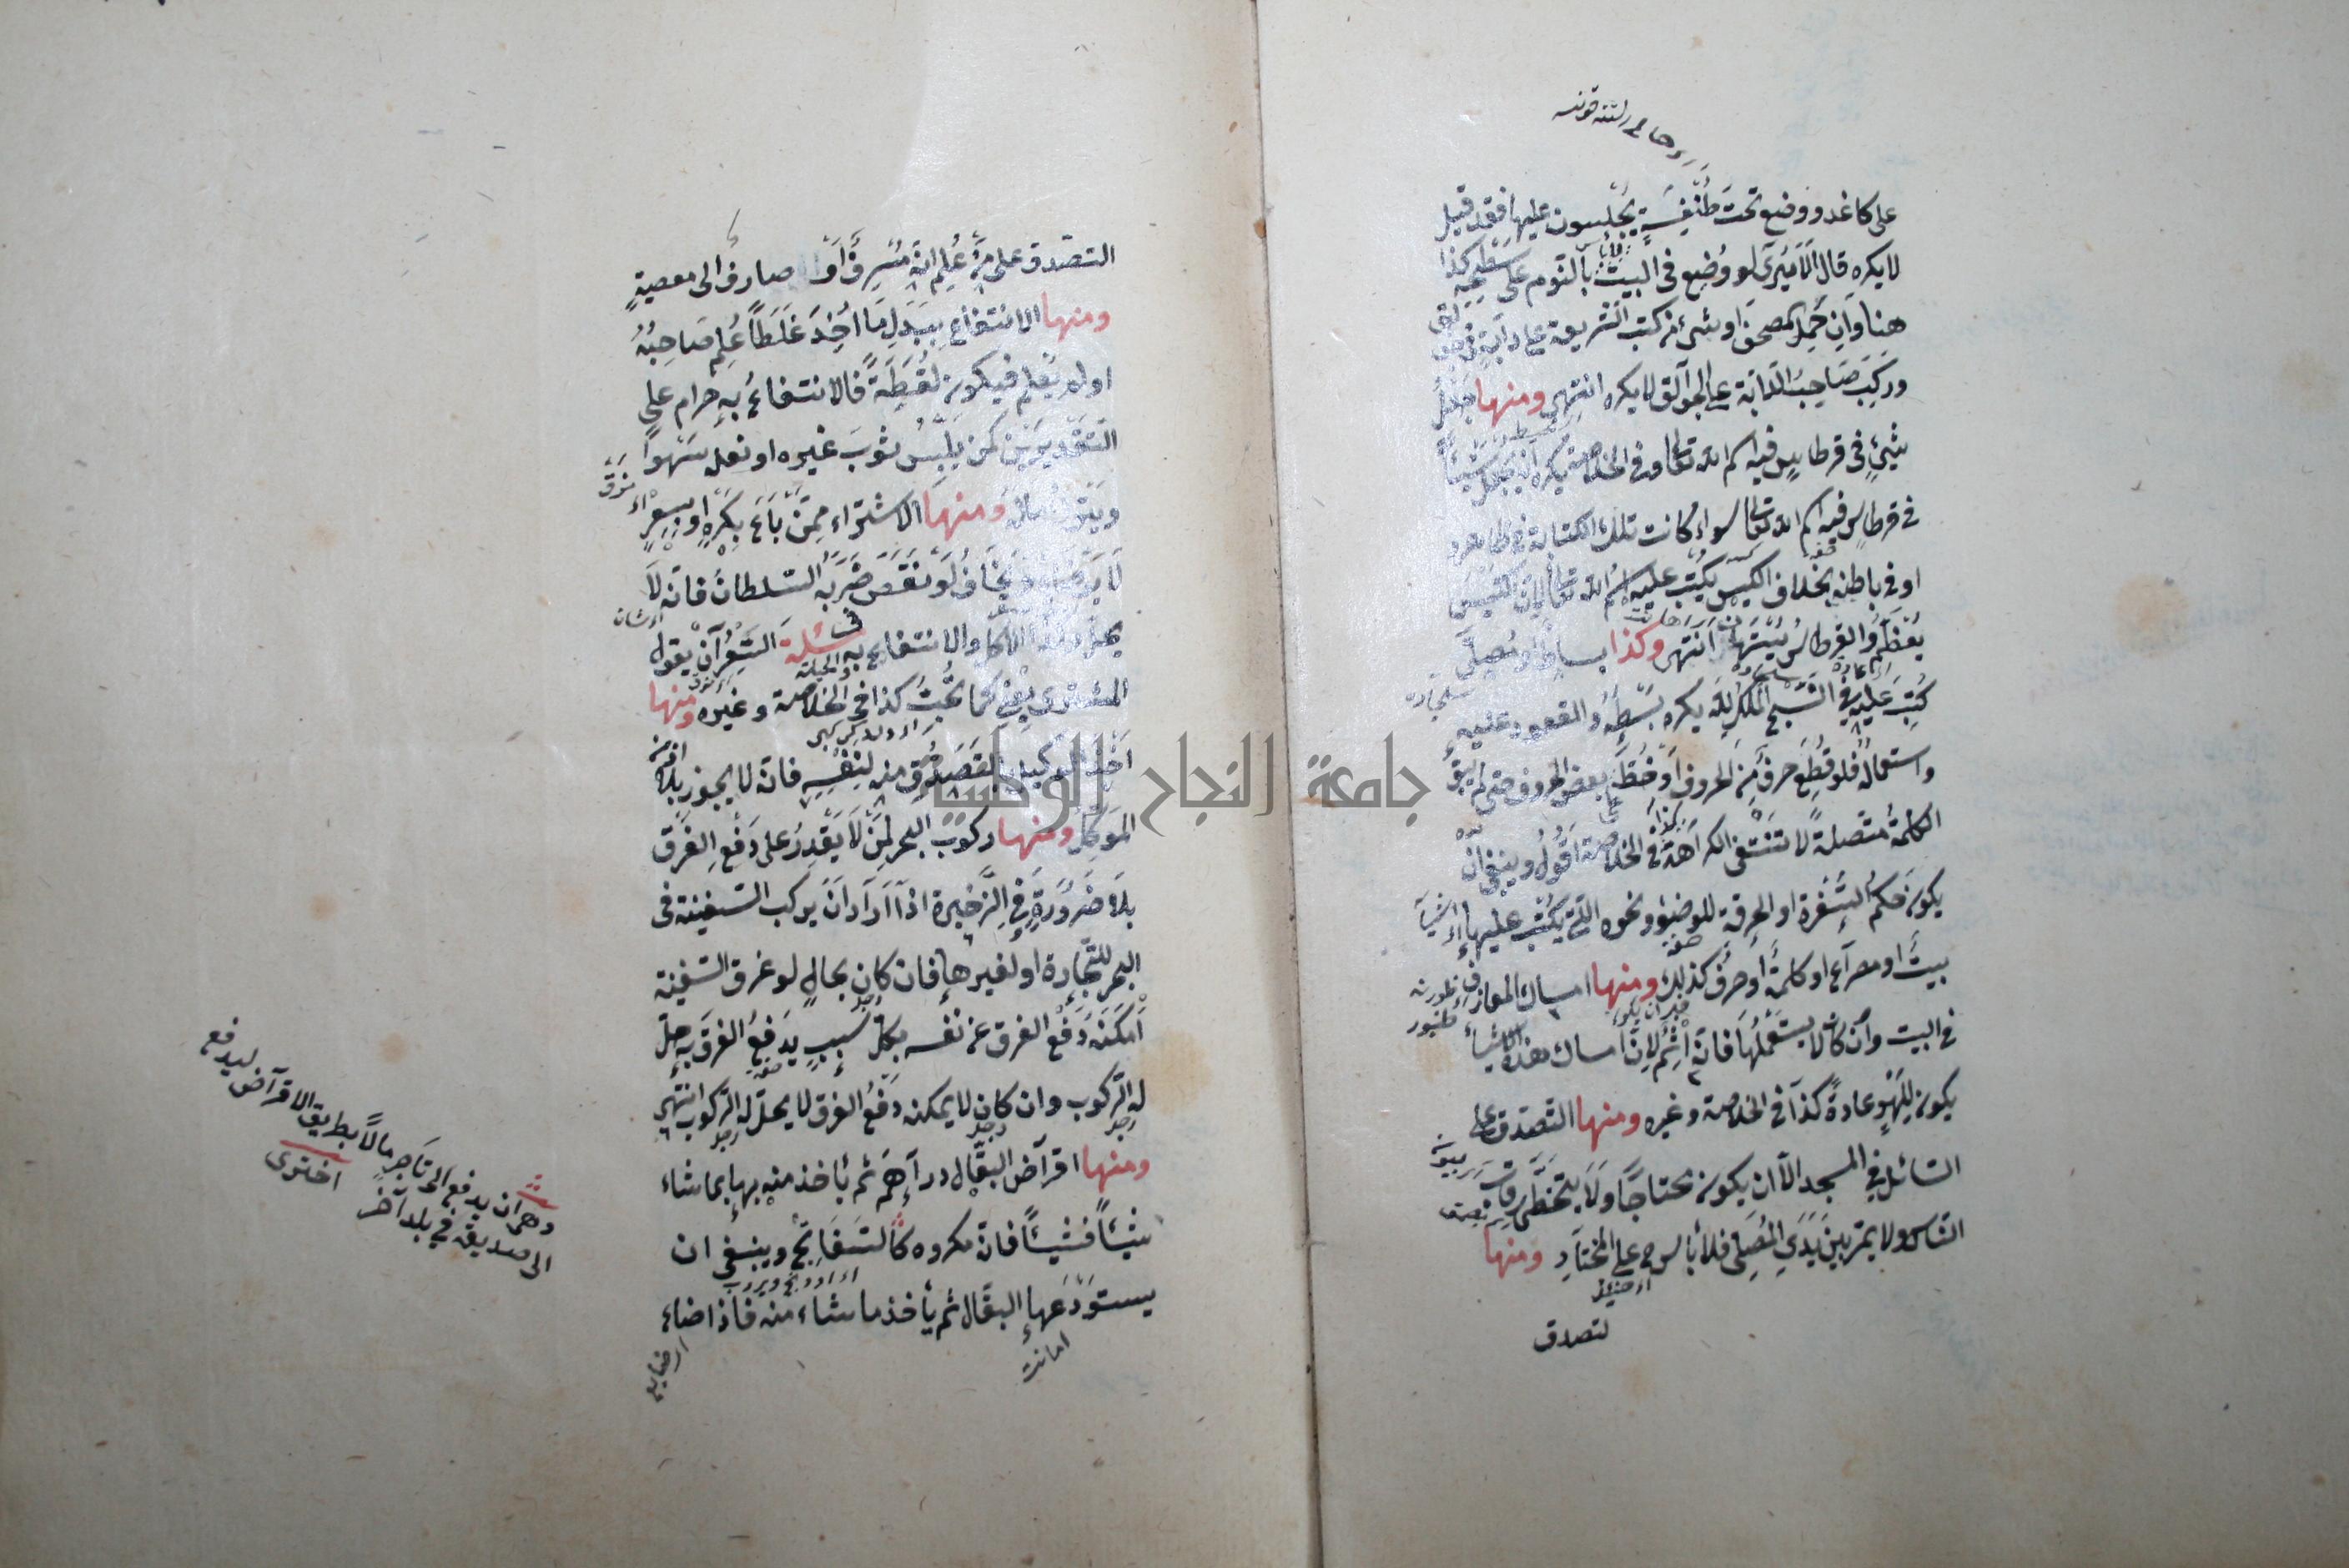 على كاغد ووضع تحت طنفسة يجلسون عليها فقد قيل
لا يكره قال الا يرى لو وضع في البيت لا بأس بالنوم على سطحه كذا
هنا وان حمل المصحف او شئ من كتب الشريعة على دابة في جوالق
وركب صاحب الدابة على الجوالق لا يكره انتهى ومنها جعل
شئ في قرطاس فيه اسم الله تعالى وفي الخلاصة يكره ان يجعل شيئا
في قرطاس فيه اسم الله تعالى سواء كانت تلك الكتابة في ظاهره
او في باطنه بخلاف الكيس يكتب عليه اسم الله تعالى لان الكيس
يعظم والقرطاس يستهان انتهى وكذا بساط او مصلى
كتب عليه في النسج الملك لله يكره بسطه والقعود عليه
واستعماله فلو قطع حرف من الحروف او خيط بعض الحروف حتى لم يبق
الكلمة متصلة لا تنتفى الكراهة كذا في الخلاصة اقول وينبغي ان
يكون حكم السفرة او الخرقة للوضوء ونحوه التي يكتب عليها
بيت او مصراع او كلمة او حرف كذلك ومنها امساك المعازف
في البيت وان كان لا يستعملها فانه اثم لان امساك هذه الاشياء
يكون للهو عادة كذا في الخلاصة وغيره ومنها التصدق على
السائل في المسجد الا ان يكون محتاجا ولا يتخطى رقاب
الناس ولا يمر بين يدي المصلى فلا بأس ح على المختار ومنها
لتصدق
التصدق على من علم انه مسرف او صارف الى معصية
ومنها الانتفاع ببدل ما اخذ غلطا علم صاحبه
او لم يعلم فيكون لقطة فالانتفاع به حرام على
التقديرين كمن يلبس ثوب غيره او نعله سهوا
ومنها الاشتراء ممن باع بكره او بسعر
لا يخاف لو نقص ضربه السلطان فانه لا
يحل الاكل والانتفاع به الحيلة في مسئلة السعر ان يقول
المشترى بعنى كما تحب كذا في الخلاصة وغيره ومنها
اخذ الوكيل بالتصدق منه لنفسه فانه لا يجوز بلا اذن
الموكل ومنها ركوب البحر لمن لا يقدر على دفع الغرق
بلا ضرورة في الذخيرة اذا اراد ان يركب السفينة في
البحر للتجارة او لغيرها فان كان بحال لو غرق السفينة
امكنه دفع الغرق عن نفسه بكل سبب يدفع الغرق به حل
له الركوب وان كان لا يمكنه دفع الغرق لا يحل له الركوب انتهى
ومنها اقراض البقال دراهم ثم يأخذ منه بها بما شاء
شيئا فشيئا فانه مكروه كالسفاتج وينبغي ان
يستودعها البقال ثم يأخذ ما شاء منه فاذا ضاع
امانت
وهو ان يدفع الى تاجر مالا بطريق الاقراض ليدفع
الى صديقه في بلد آخر
اختري
جامعة النجاح الوطنية